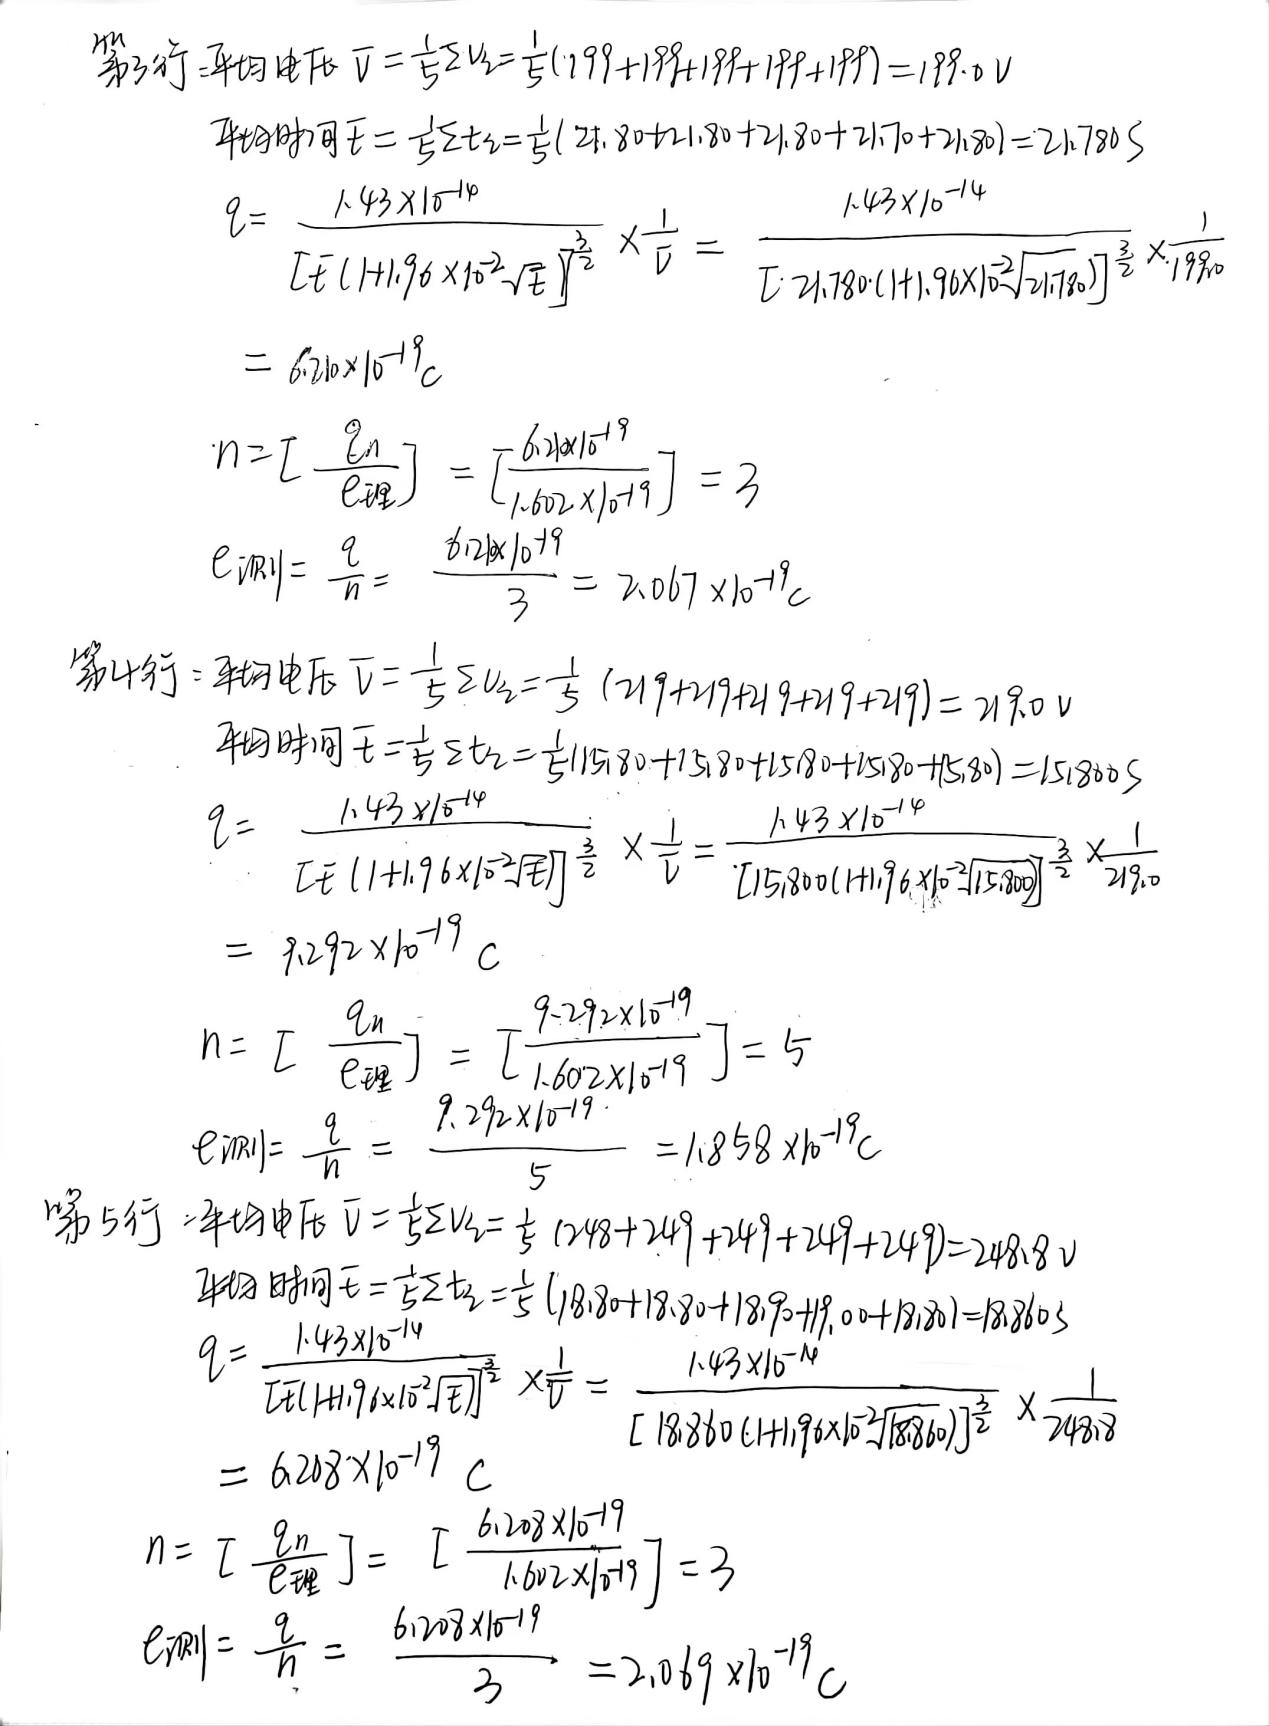 第3行:平均电压 V̄ = 1/5 ΣVi = 1/5(199+199+199+199+199) = 199.0 V
平均时间 t̄ = 1/5 Σti = 1/5(21.80+21.80+21.80+21.70+21.80) = 21.780 S
q = 1.43×10^-14 / [t̄(1+1.96×10^-2 √t̄)]^3/2 × 1/V̄ = 1.43×10^-14 / [21.780·(1+1.96×10^-2 √21.780)]^3/2 × 1/199.0
= 6.210×10^-19 C
n = [qn / e理] = [6.210×10^-19 / 1.602×10^-19] = 3
e测 = q/n = 6.210×10^-19 / 3 = 2.067×10^-19 C
第4行:平均电压 V̄ = 1/5 ΣUi = 1/5 (219+219+219+219+219) = 219.0 V
平均时间 t̄ = 1/5 Σti = 1/5(15.80+15.80+15.80+15.80+15.80) = 15.800 S
q = 1.43×10^-14 / [t̄(1+1.96×10^-2 √t̄)]^3/2 × 1/V̄ = 1.43×10^-14 / [15.800(1+1.96×10^-2 √15.800)]^3/2 × 1/219.0
= 9.292×10^-19 C
n = [qn / e理] = [9.292×10^-19 / 1.602×10^-19] = 5
e测 = q/n = 9.292×10^-19 / 5 = 1.858×10^-19 C
第5行:平均电压 V̄ = 1/5 ΣVi = 1/5 (248+249+249+249+249) = 248.8 V
平均时间 t̄ = 1/5 Σti = 1/5 (18.80+18.80+18.90+19.00+18.80) = 18.860 s
q = 1.43×10^-14 / [t̄(1+1.96×10^-2 √t̄)]^3/2 × 1/V̄ = 1.43×10^-14 / [18.860(1+1.96×10^-2 √18.860)]^3/2 × 1/248.8
= 6.208×10^-19 C
n = [qn / e理] = [6.208×10^-19 / 1.602×10^-19] = 3
e测 = q/n = 6.208×10^-19 / 3 = 2.069×10^-19 C